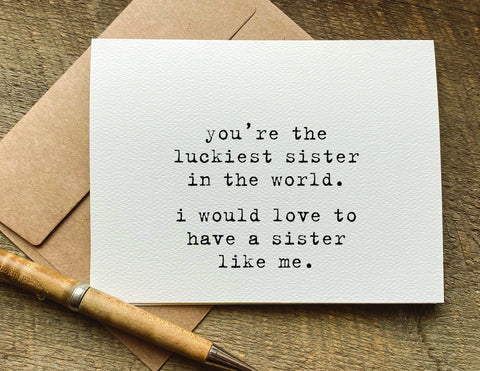 you're the
luckiest sister
in the world.
i would love to
have a sister
like me.